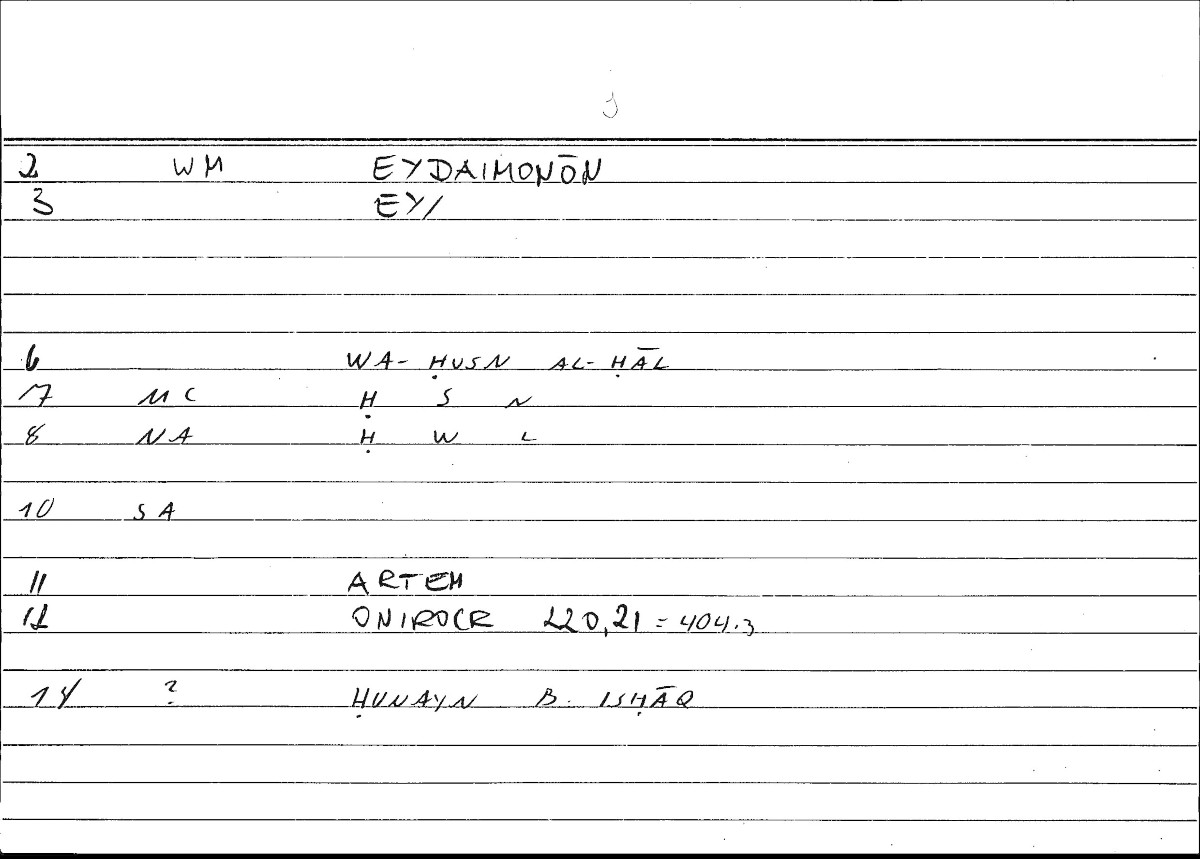 2 WM EYDAIMONŌN
3 EY/
6 WA- ḤUSN AL-ḤĀL
7 MC Ḥ S N
8 NA Ḥ W L
10 SA
11 ARTEM
12 ONIROCR 220,21 = 404.3
14 ? ḤUNAYN B. ISḤĀQ